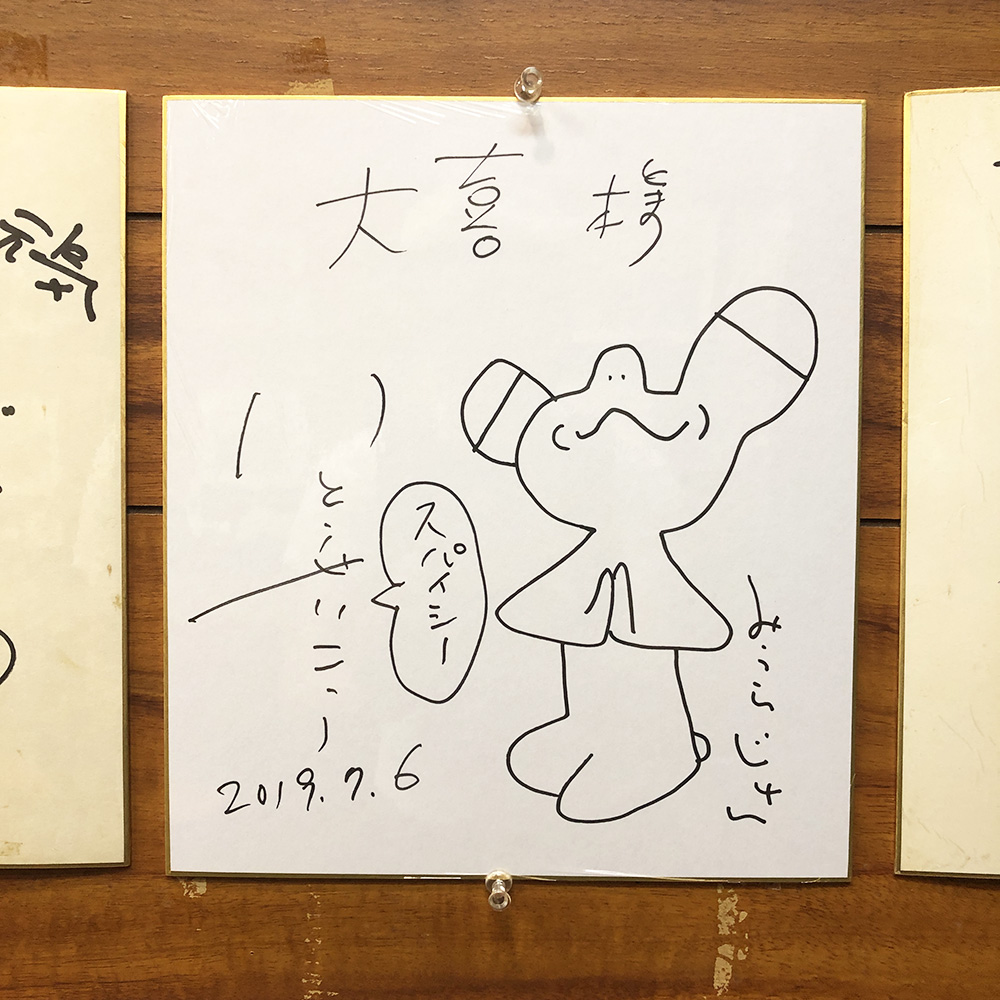 大喜様
みうらじゅん
スパイシー
いとうせいこう
2019.7.6